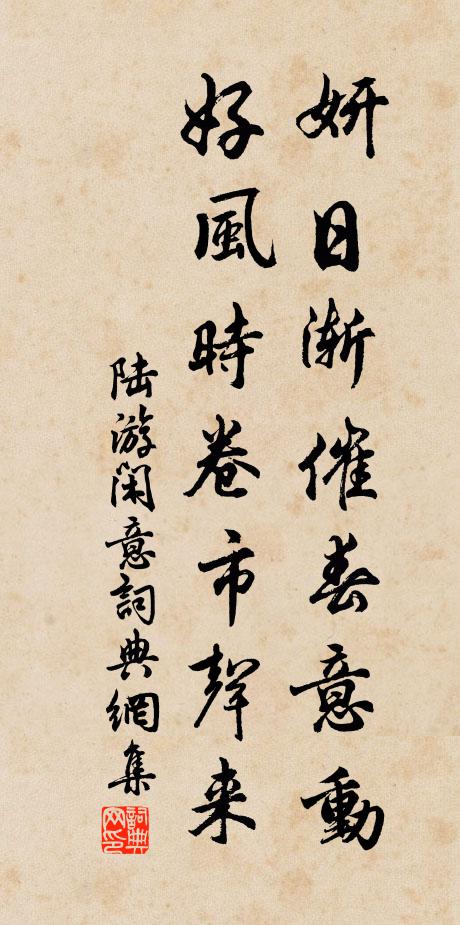 妍日漸催春意動
好風時卷市聲来
陸游閑意詞典網集
詞典网印